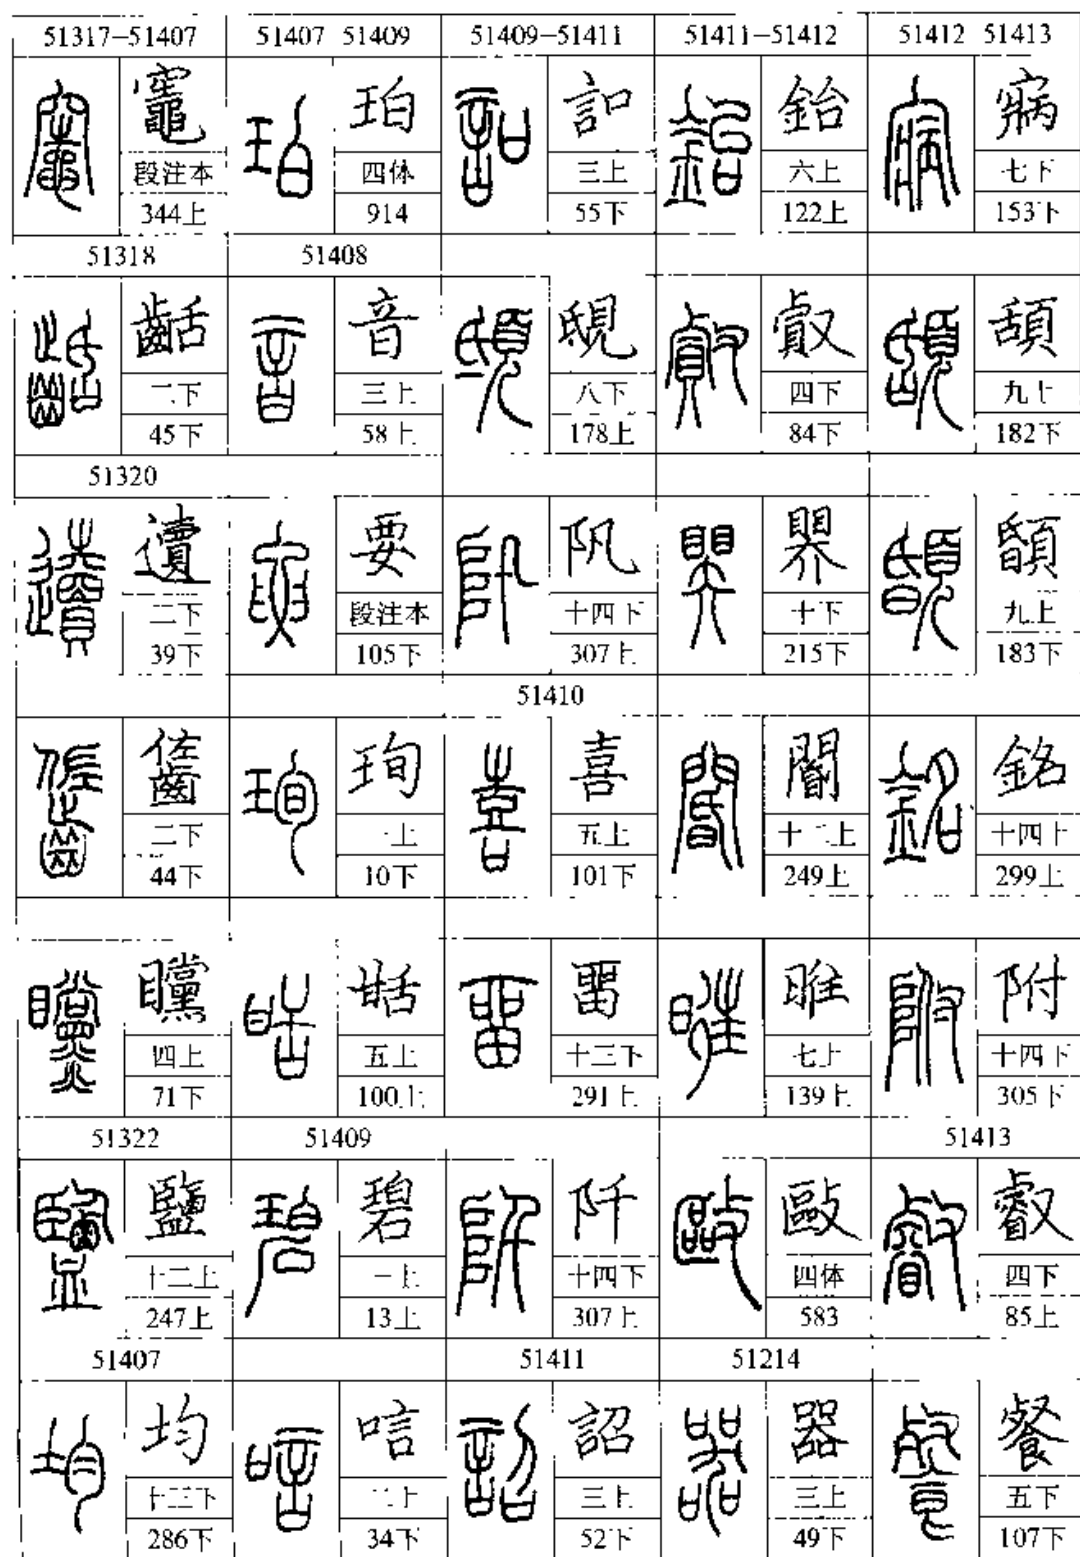 51317–51407
竈
段注本
344上
51318
二下
45下
51320
二下
39下
二下
44下
矘
四上
71下
51322
鹽
十二上
247上
51407
均
十三下
286下
51407 51409
珀
四体
914
51408
音
三上
58上
要
段注本
105下
珣
一上
10下
甛
五上
100上
51409
碧
一上
13上
唁
二上
34下
51409–51411
三上
55下
八下
178上
阠
十四下
307上
51410
喜
五上
101下
畱
十三下
291上
阡
十四下
307上
51411
詔
三上
52下
51411–51412
鈶
六上
122上
四下
84下
十下
215下
閽
十二上
249上
七上
139上
敺
四体
583
51214
器
三上
49下
51412 51413
寎
七下
153下
頢
九上
182下
九上
183下
銘
十四上
299上
附
十四下
305下
51413
叡
四下
85上
餐
五下
107下